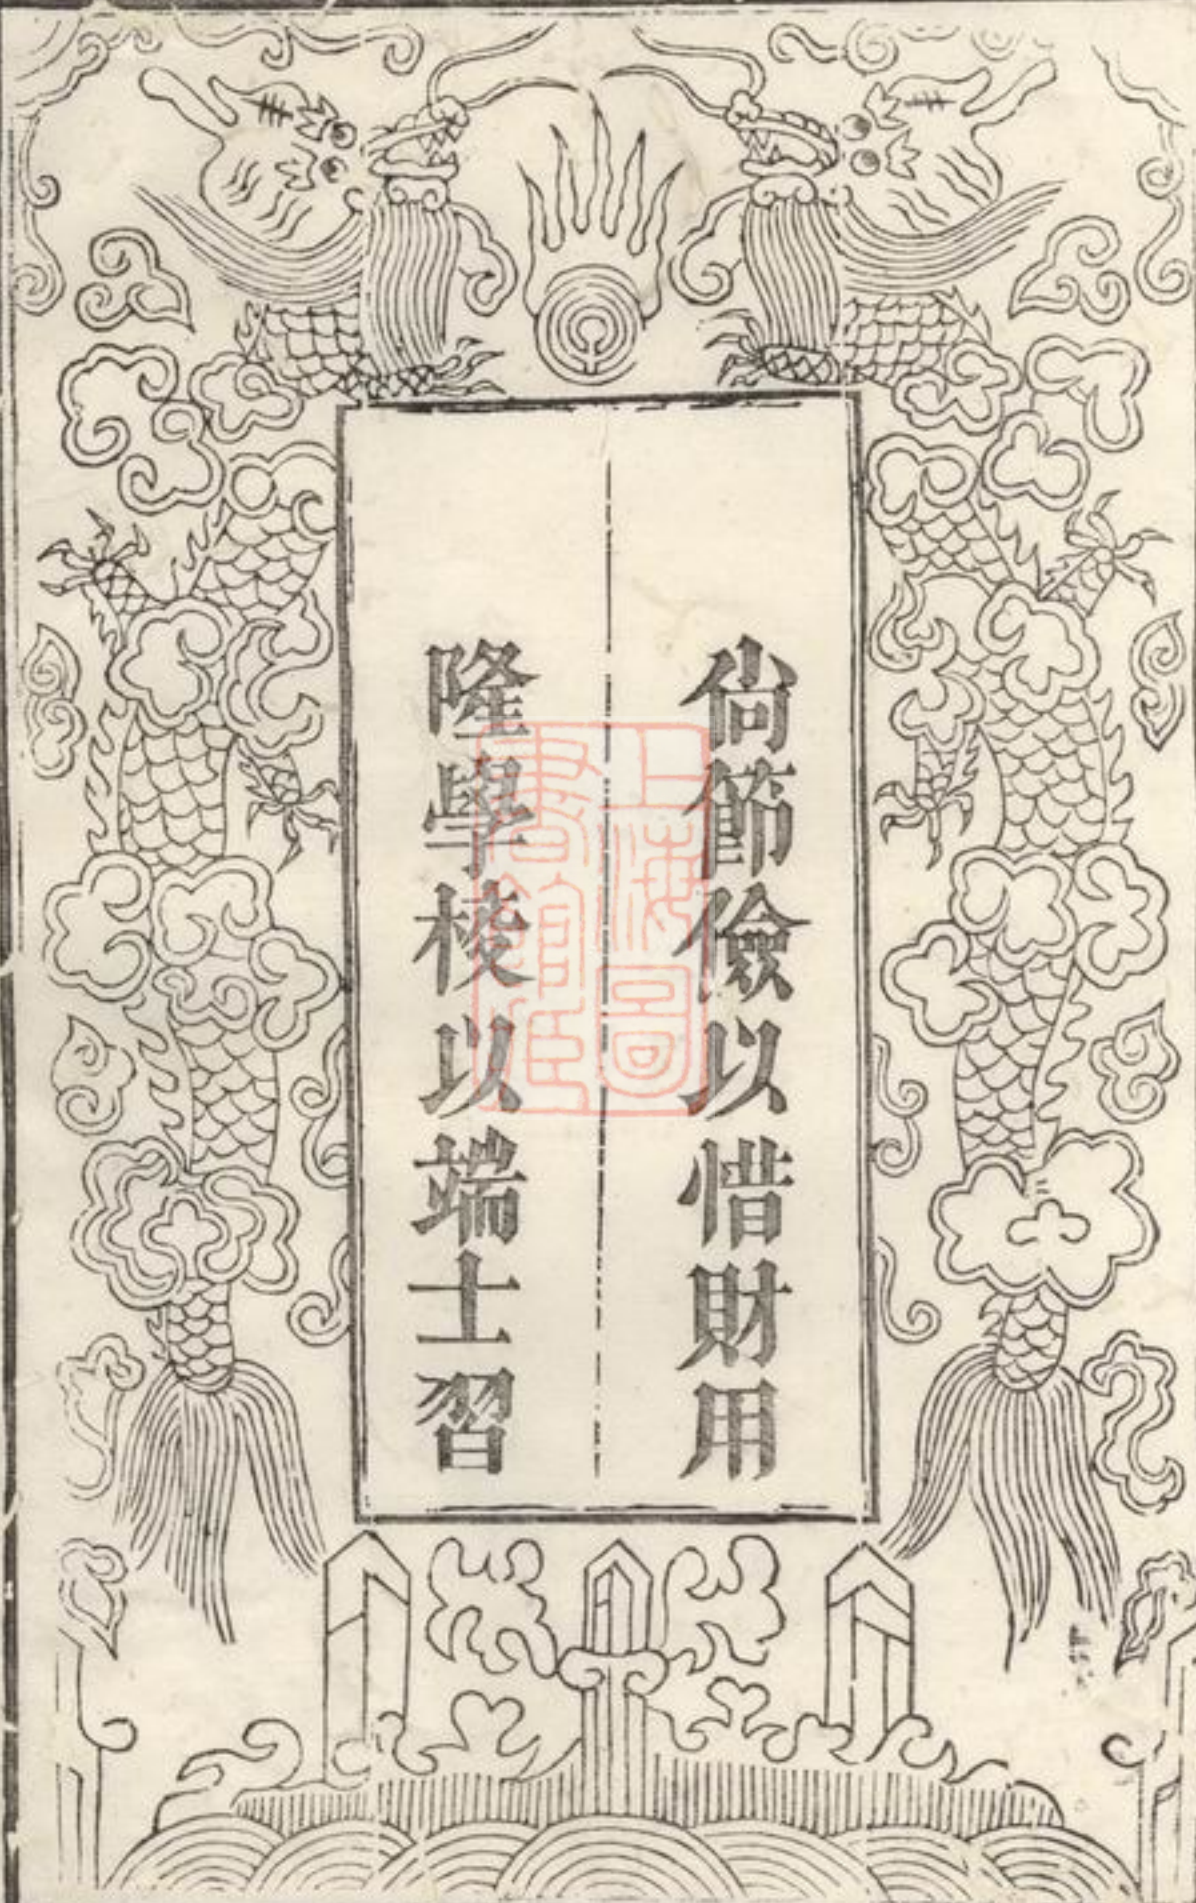 尙節儉以惜財用
隆學校以端士習
上海圖
書館藏